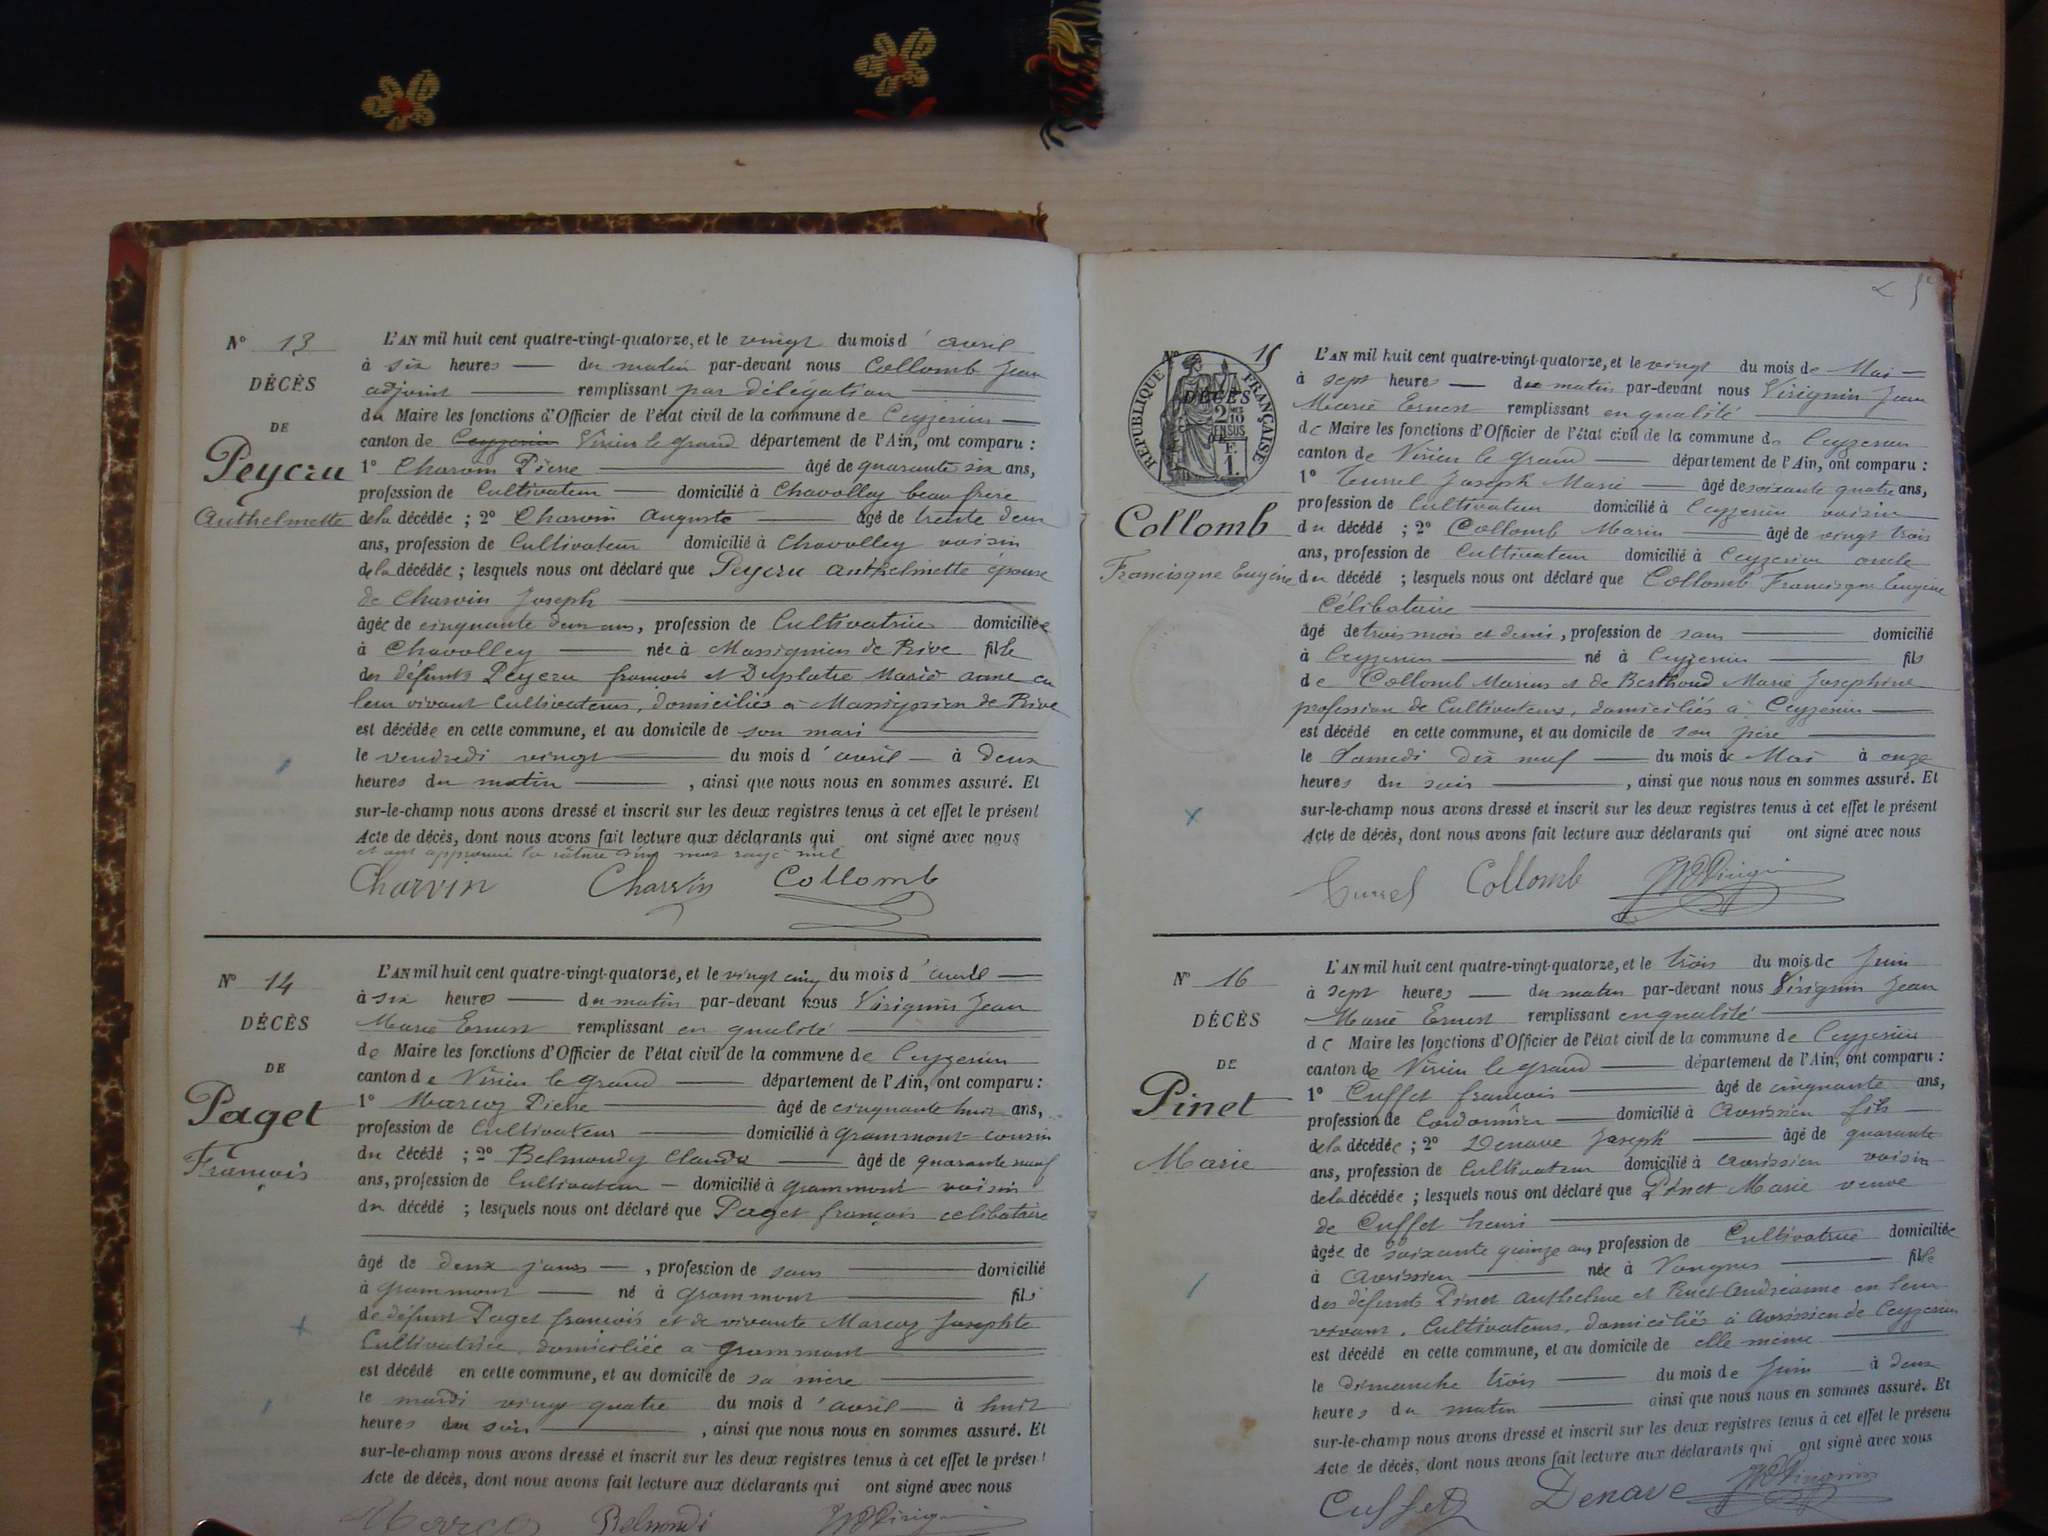 N° 13
DÉCÈS
DE
Peycru
Anthelmette
L'AN mil huit cent quatre-vingt-quatorze, et le vingt du mois d'avril
à six heures du matin par-devant nous Collomb Jean
adjoint remplissant par délégation
du Maire les fonctions d'Officier de l'état civil de la commune de Ceyzerieu
canton de Ceyzerieu Virieu le grand département de l'Ain, ont comparu :
1° Charvin Pierre âgé de quarante six ans,
profession de Cultivateur domicilié à Chavolley beau frère
de la décédée ; 2° Charvin Auguste âgé de trente deux
ans, profession de Cultivateur domicilié à Chavolley voisin
de la décédée ; lesquels nous ont déclaré que Peycru Anthelmette épouse
de Charvin Joseph
âgée de cinquante deux ans, profession de Cultivatrice domiciliée
à Chavolley née à Massignieu de Rive fille
des défunts Peycru françois et Duplatre Marie en
leur vivant Cultivateurs, domiciliés à Massignieu de Rive
est décédée en cette commune, et au domicile de son mari
le vendredi vingt du mois d'avril à deux
heures du matin, ainsi que nous nous en sommes assuré. Et
sur-le-champ nous avons dressé et inscrit sur les deux registres tenus à cet effet le présent
Acte de décès, dont nous avons fait lecture aux déclarants qui ont signé avec nous
et ont approuvé la râture d'un mot rayé nul
Charvin Charvin Collomb
N° 14
DÉCÈS
DE
Paget
François
L'AN mil huit cent quatre-vingt-quatorze, et le vingt cinq du mois d'avril
à six heures du matin par-devant nous Virignin Jean
Marie Ernest remplissant en qualité
de Maire les fonctions d'Officier de l'état civil de la commune de Ceyzerieu
canton de Virieu le grand département de l'Ain, ont comparu :
1° Marcoz Pierre âgé de cinquante huit ans,
profession de Cultivateur domicilié à grammont cousin
du décédé ; 2° Belmondy Claude âgé de quarante neuf
ans, profession de Cultivateur domicilié à grammont voisin
du décédé ; lesquels nous ont déclaré que Paget françois celibataire
âgé de deux jours, profession de sans domicilié
à grammont né à grammont fils
de défunt Paget françois et de vivante Marcoz Josephte
Cultivatrice domiciliée à grammont
est décédé en cette commune, et au domicile de sa mère
le mardi vingt quatre du mois d'avril à huit
heures du soir, ainsi que nous nous en sommes assuré. Et
sur-le-champ nous avons dressé et inscrit sur les deux registres tenus à cet effet le présent
Acte de décès, dont nous avons fait lecture aux déclarants qui ont signé avec nous
Marcoz Belmondi
N° 15
RÉPUBLIQUE FRANÇAISE
DÉCÈS
2/10 EN SUS
F. 1.
Collomb
Francisque Eugène
L'AN mil huit cent quatre-vingt-quatorze, et le vingt du mois de Mai
à sept heures du matin par-devant nous Virignin Jean
Marie Ernest remplissant en qualité
de Maire les fonctions d'Officier de l'état civil de la commune de Ceyzerieu
canton de Virieu le grand département de l'Ain, ont comparu :
1° Turrel Joseph Marie âgé de soixante quatre ans,
profession de Cultivateur domicilié à Ceyzerieu voisin
du décédé ; 2° Collomb Marin âgé de vingt trois
ans, profession de Cultivateur domicilié à Ceyzerieu oncle
du décédé ; lesquels nous ont déclaré que Collomb Francisque Eugène
Célibataire
âgé de trois mois et demi, profession de sans domicilié
à Ceyzerieu né à Ceyzerieu fils
de Collomb Marius et de Berthoud Marie Josephine
profession de Cultivateurs, domiciliés à Ceyzerieu
est décédé en cette commune, et au domicile de son père
le Samedi dix neuf du mois de Mai à onze
heures du soir, ainsi que nous nous en sommes assuré. Et
sur-le-champ nous avons dressé et inscrit sur les deux registres tenus à cet effet le présent
Acte de décès, dont nous avons fait lecture aux déclarants qui ont signé avec nous
Turrel Collomb Virignin
N° 16
DÉCÈS
DE
Pinet
Marie
L'AN mil huit cent quatre-vingt-quatorze, et le trois du mois de Juin
à sept heures du matin par-devant nous Virignin Jean
Marie Ernest remplissant en qualité
de Maire les fonctions d'Officier de l'état civil de la commune de Ceyzerieu
canton de Virieu le grand département de l'Ain, ont comparu :
1° Cuffet françois âgé de cinquante ans,
profession de Cordonnier domicilié à Avrissieu fils
de la décédée ; 2° Denave Joseph âgé de quarante
ans, profession de Cultivateur domicilié à Avrissieu voisin
de la décédée ; lesquels nous ont déclaré que Pinet Marie veuve
de Cuffet henri
âgée de soixante quinze ans profession de Cultivatrice domiciliée
à Avrissieu née à Vongnes fille
des défunts Pinet Anthelme et Andréanne en leur
vivant, Cultivateurs, domiciliés à Avrissieu de Ceyzerieu
est décédée en cette commune, et au domicile de elle même
le dimanche trois du mois de Juin à deux
heures du matin ainsi que nous nous en sommes assuré. Et
sur-le-champ nous avons dressé et inscrit sur les deux registres tenus à cet effet le présent
Acte de décès, dont nous avons fait lecture aux déclarants qui ont signé avec nous
Cuffet Denave Virignin